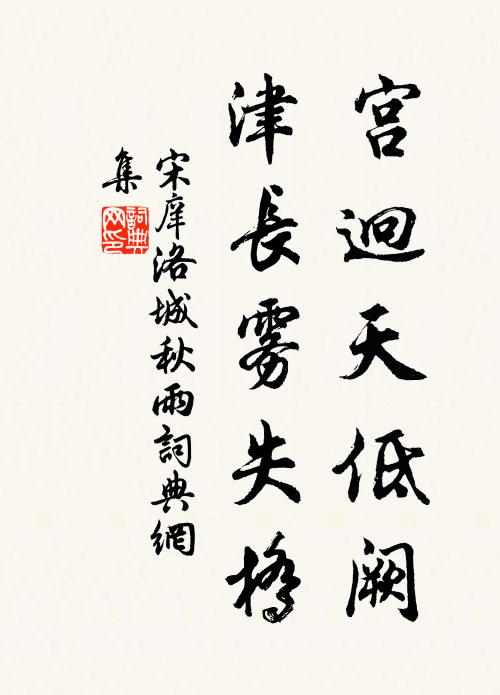 宮迥天低闕
津長雾失橋
宋庠洛城秋雨詞典網
集
詞典
网印